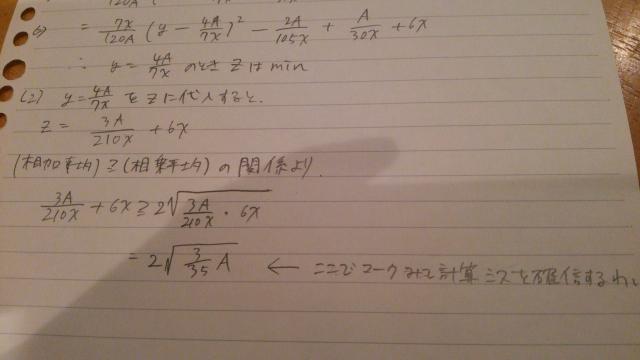 = 7x/120A (y - 4A/7x)² - 2A/105x + A/30x + 6x
∴ y = 4A/7x のとき zはmin
(2) y=4A/7x をzに代入すると、
z = 3A/210x + 6x
(相加平均)≧(相乗平均)の関係より、
3A/210x + 6x ≧ 2√(3A/210x・6x)
= 2√(3/35 A) ← ここでマークみて計算ミスを確信する